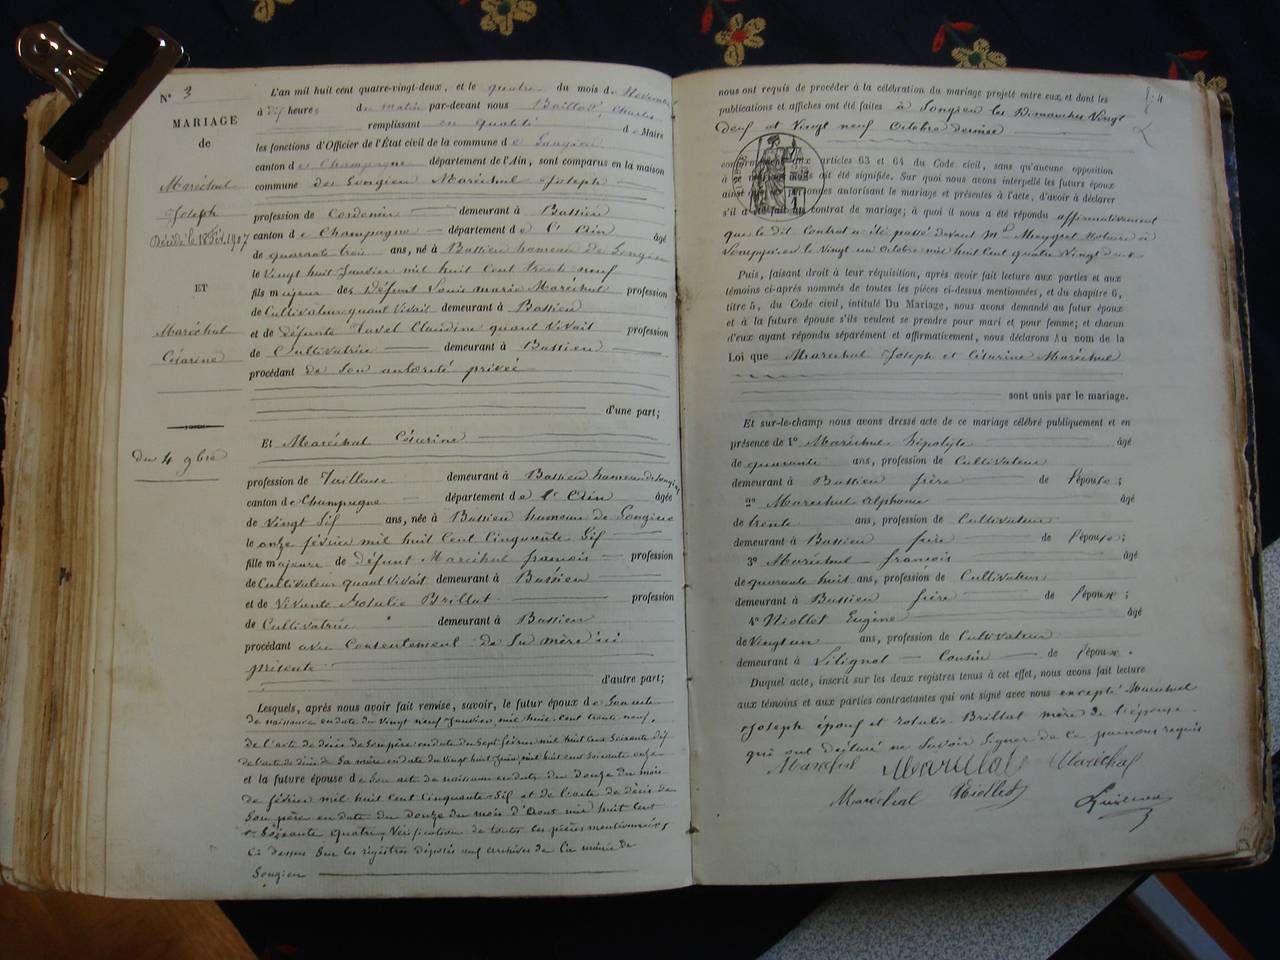 N° 3
MARIAGE
de
Maréchal
Joseph
Décédé le 18 Fév. 1907
ET
Maréchal
Césarine
du 4 9bre
L'an mil huit cent quatre-vingt-deux, et le quatre du mois de Novembre
à dix heures du matin par-devant nous Baillod, Charles
remplissant en qualité de Maire
les fonctions d'Officier de l'État civil de la commune de Songieu
canton de Champagne département de l'Ain, sont comparus en la maison
commune de Songieu Maréchal Joseph
profession de Cordonnier demeurant à Bassieu
canton de Champagne département de l'Ain âgé
de quarante trois ans, né à Bassieu hameau de Songieu
le vingt huit Janvier mil huit cent trente neuf
fils majeur de Défunt Louis marie Maréchal profession
de Cultivateur quant vivait demeurant à Bassieu
et de défunte Javel Claudine quant vivait profession
de Cultivatrice demeurant à Bassieu
procédant de son autorité privée
d'une part;
Et Maréchal Césarine
profession de Tailleuse demeurant à Bassieu hameau de Songieu
canton de Champagne département de l'Ain âgée
de Vingt Six ans, née à Bassieu hameau de Songieu
le onze février mil huit Cent Cinquante Six
fille majeure de défunt Maréchal françois profession
de Cultivateur quant vivait demeurant à Bassieu
et de Vivante Rotalie Brillat profession
de Cultivatrice demeurant à Bassieu
procédant avec Consentement de sa mère ici
présente
d'autre part;
Lesquels, après nous avoir fait remise, savoir, le futur époux de Son acte
de naissance en date du vingt neuf Janvier mil huit cent trente neuf,
de l'acte de décès de son père en date du Sept février mil huit cent Soixante dix
de l'acte de décès de sa mère en date du vingt huit Juin mil huit cent soixante onze
et la future épouse de Son acte de naissance en date du Douze du mois
de février mil huit Cent Cinquante Six et de l'acte de décès de
Son père en date du douze du mois d'Aout mil huit Cent
Soixante quatre, Vérification de toutes les pièces mentionnées
Ci dessus Sur les registres déposés aux archives de la mairie de
Songieu
nous ont requis de procéder à la célébration du mariage projeté entre eux, et dont les
publications et affiches ont été faites à Songieu les Dimanches Vingt
Deux et Vingt neuf Octobre dernier
conformément aux articles 63 et 64 du Code civil, sans qu'aucune opposition
à ait été signifiée. Sur quoi nous avons interpellé les futurs époux
ainsi que les personnes autorisant le mariage et présentes à l'acte, d'avoir à déclarer
s'il a été fait un contrat de mariage; à quoi il nous a été répondu affirmativement
que le dit Contrat a été passé devant Me Notaire à
le Vingt un Octobre mil huit Cent quatre Vingt deux
Puis, faisant droit à leur réquisition, après avoir fait lecture aux parties et aux
témoins ci-après nommés de toutes les pièces ci-dessus mentionnées, et du chapitre 6,
titre 5, du Code civil, intitulé Du Mariage, nous avons demandé au futur époux
et à la future épouse s'ils veulent se prendre pour mari et pour femme; et chacun
d'eux ayant répondu séparément et affirmativement, nous déclarons Au nom de la
Loi que Maréchal Joseph et Césarine Maréchal
sont unis par le mariage.
Et sur-le-champ nous avons dressé acte de ce mariage célébré publiquement et en
présence de 1° Maréchal hipolyte âgé
de quarante ans, profession de Cultivateur
demeurant à Bassieu frère de l'épouse;
2° Maréchal Alphonse âgé
de trente ans, profession de Cultivateur
demeurant à Bassieu frère de l'épouse;
3° Maréchal françois âgé
de quarante huit ans, profession de Cultivateur
demeurant à Bassieu frère de l'époux;
4° Niollet Eugène âgé
de vingt un ans, profession de Cultivateur
demeurant à Vilignat Cousin de l'époux.
Duquel acte, inscrit sur les deux registres tenus à cet effet, nous avons fait lecture
aux témoins et aux parties contractantes qui ont signé avec nous excepté Maréchal
Joseph époux et Rotalie Brillat mère de l'épouse
qui ont déclaré ne Savoir Signer de ce par nous requis
Maréchal Maréchal Maréchal
Maréchal Niollet